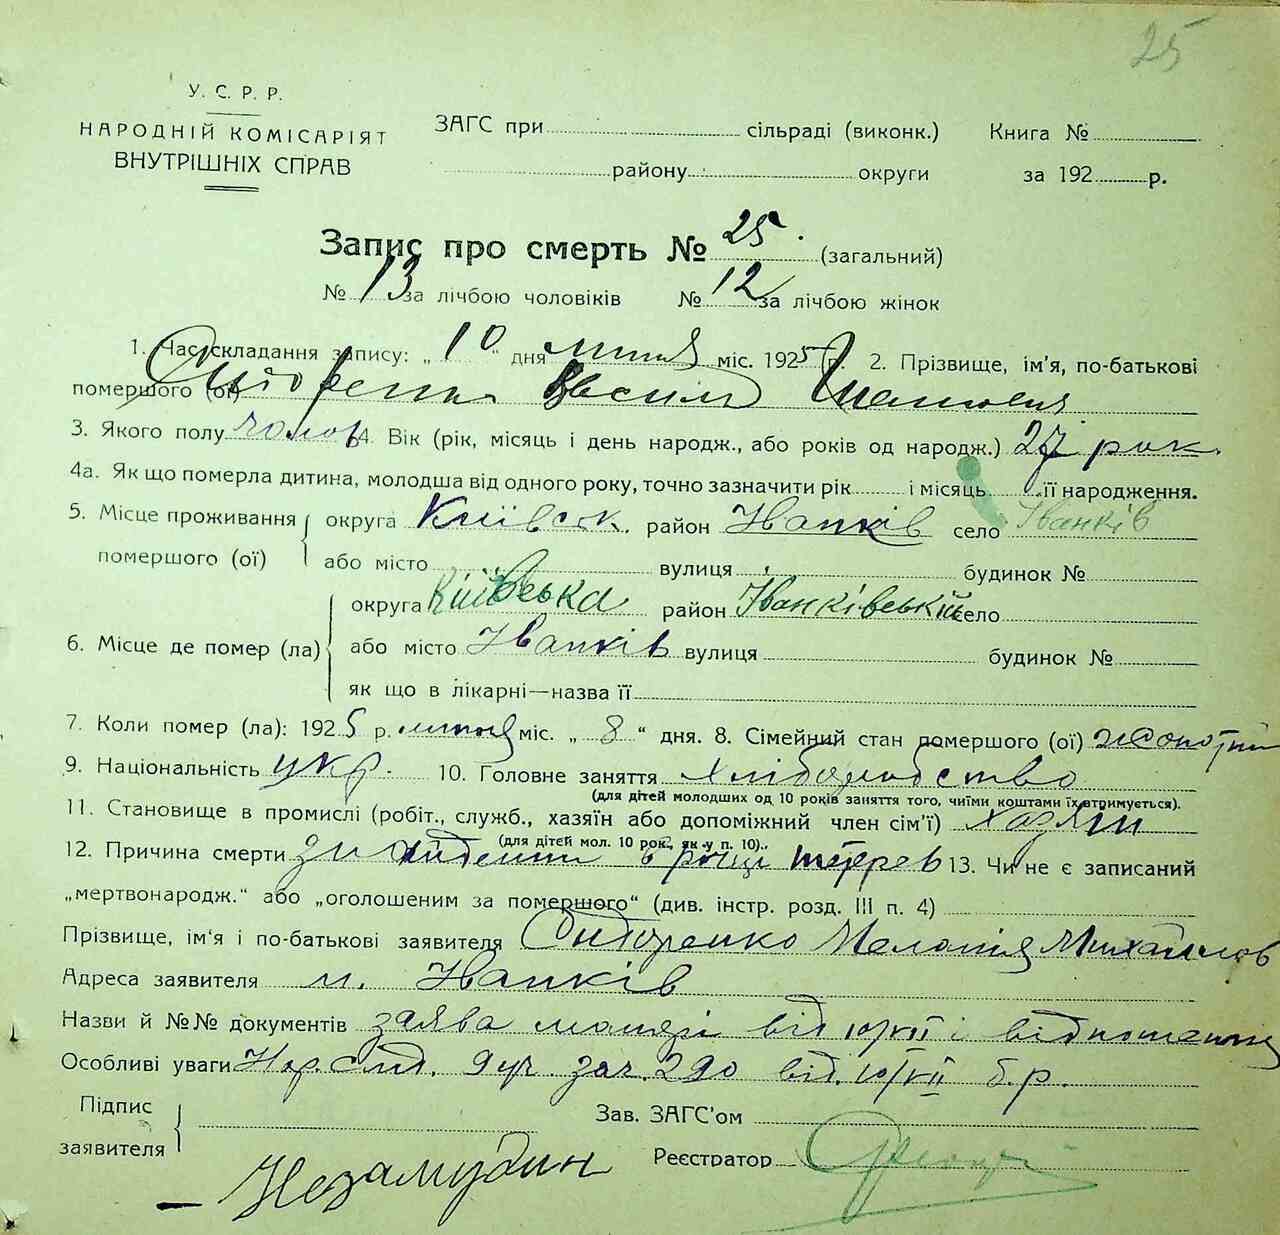 25
У. С. Р. Р.
НАРОДНІЙ КОМІСАРІЯТ
ВНУТРІШНІХ СПРАВ
ЗАГС при сільраді (виконк.)
району округи
Книга №
за 192 р.
Запис про смерть № 25. (загальний)
№ 13 за лічбою чоловіків № 12 за лічбою жінок
1. Час складання запису: „ 10 “ дня липня міс. 1925 р. 2. Прізвище, ім'я, по-батькові
помершого (ої) Сидоренко Василь
3. Якого полу чолов 4. Вік (рік, місяць і день народж., або років од народж.) 27 рок.
4а. Як що померла дитина, молодша від одного року, точно зазначити рік і місяць її народження.
5. Місце проживання помершого (ої) округа Київськ. район Іванків село Іванків
або місто вулиця будинок №
6. Місце де помер (ла) округа Київська район Іванківський село
або місто Іванків вулиця будинок №
як що в лікарні—назва її
7. Коли помер (ла): 1925 р. липня міс. „ 8 “ дня. 8. Сімейний стан помершого (ої)
9. Національність укр. 10. Головне заняття хліборобство
(для дітей молодших од 10 років заняття того, чиїми коштами їх утримується).
11. Становище в промислі (робіт., служб., хазяїн або допоміжний член сім'ї) хазяїн
(для дітей мол. 10 рок., як у п. 10).
12. Причина смерти в річці Тетерев 13. Чи не є записаний
„мертвонародж.“ або „оголошеним за помершого“ (див. інстр. розд. III п. 4)
Прізвище, ім'я і по-батькові заявителя Сидоренко Михайлов
Адреса заявителя м. Іванків
Назви й №№ документів заява матері від 10/VII і відношення
Особливі уваги Нар. Слід. 9 уч. за ч. 290 від 10/VII б.р.
Підпис заявителя
Зав. ЗАГС'ом
Реєстратор